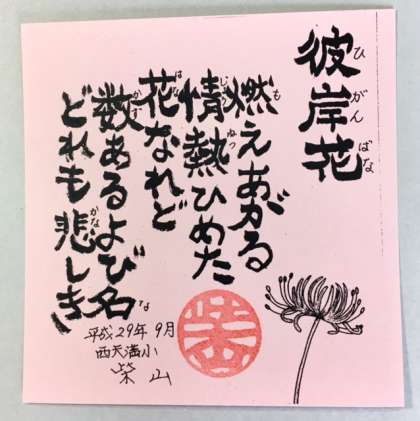 彼岸花
ひがんばな
燃えあがる
も
情熱ひめた
じょうねつ
花なれど
はな
数あるよび名
かず
な
どれも悲しき
かな
平成29年9月
西天満小
柴山